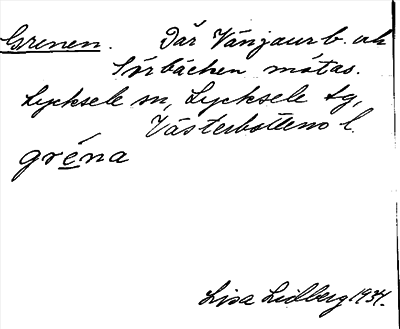 Grenen. Där Vänjaurb. och
Sörbäcken mötas.
Lycksele sn, Lycksele tg,
Västerbottens l.
gréna
Lisa Lidberg 1934.